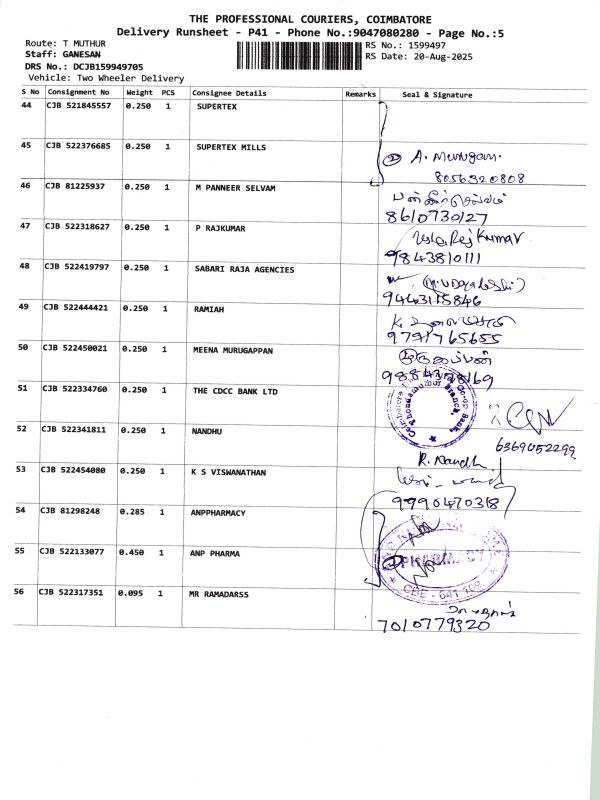 THE PROFESSIONAL COURIERS, COIMBATORE
Delivery Runsheet - P41 - Phone No.:9047080280 - Page No.:5
Route: T MUTHUR
RS No.: 1599497
Staff: GANESAN
RS Date: 20-Aug-2025
DRS No.: DCJB159949705
Vehicle: Two Wheeler Delivery
S No Consignment No Weight PCS Consignee Details Remarks Seal & Signature
44 CJB 521845557 0.250 1 SUPERTEX
45 CJB 522376685 0.250 1 SUPERTEX MILLS
② A. Murugan.
8056320808
46 CJB 81225937 0.250 1 M PANNEER SELVAM
பன்னீர்செல்வம்
8610730127
47 CJB 522318627 0.250 1 P RAJKUMAR
Raj Kumar
9843810111
48 CJB 522419797 0.250 1 SABARI RAJA AGENCIES
9443115846
49 CJB 522444421 0.250 1 RAMIAH
K.
9791765655
50 CJB 522450021 0.250 1 MEENA MURUGAPPAN
51 CJB 522334760 0.250 1 THE CDCC BANK LTD
Co-op Bank,
Branch.
6369052299
52 CJB 522341811 0.250 1 NANDHU
R. Nandh
53 CJB 522454080 0.250 1 K S VISWANATHAN
9990470318
54 CJB 81298248 0.285 1 ANPPHARMACY
55 CJB 522133077 0.450 1 ANP PHARMA
PHARMACY
CBE - 641 109
56 CJB 522317351 0.095 1 MR RAMADARSS
7010779320